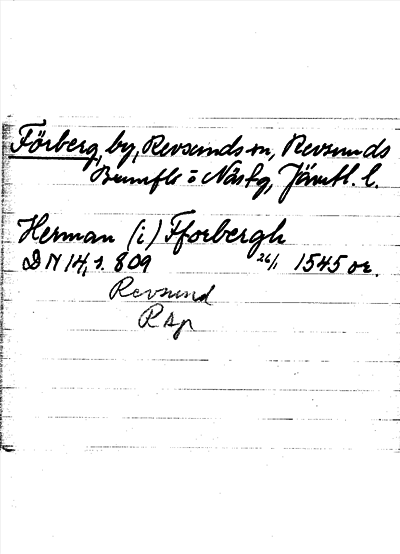 Förberg, by, Revsunds sn, Revsunds
Brunflo o Näskg, Jämtl. l.
Herman (i) Fforbergh
DN 14, s. 809 26/1 1545 or.
Revsund
Rsp